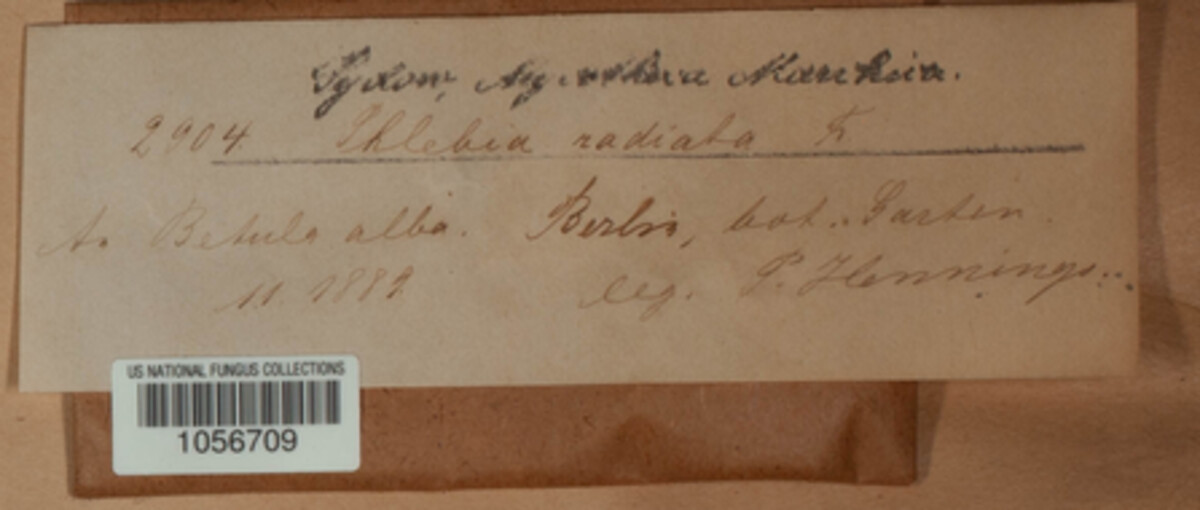 Sydow, Mycotheca Marchica.
2904. Phlebia radiata Fr.
An Betula alba. Berlin, bot. Garten.
11. 1889 leg. P. Hennings.
US NATIONAL FUNGUS COLLECTIONS
1056709